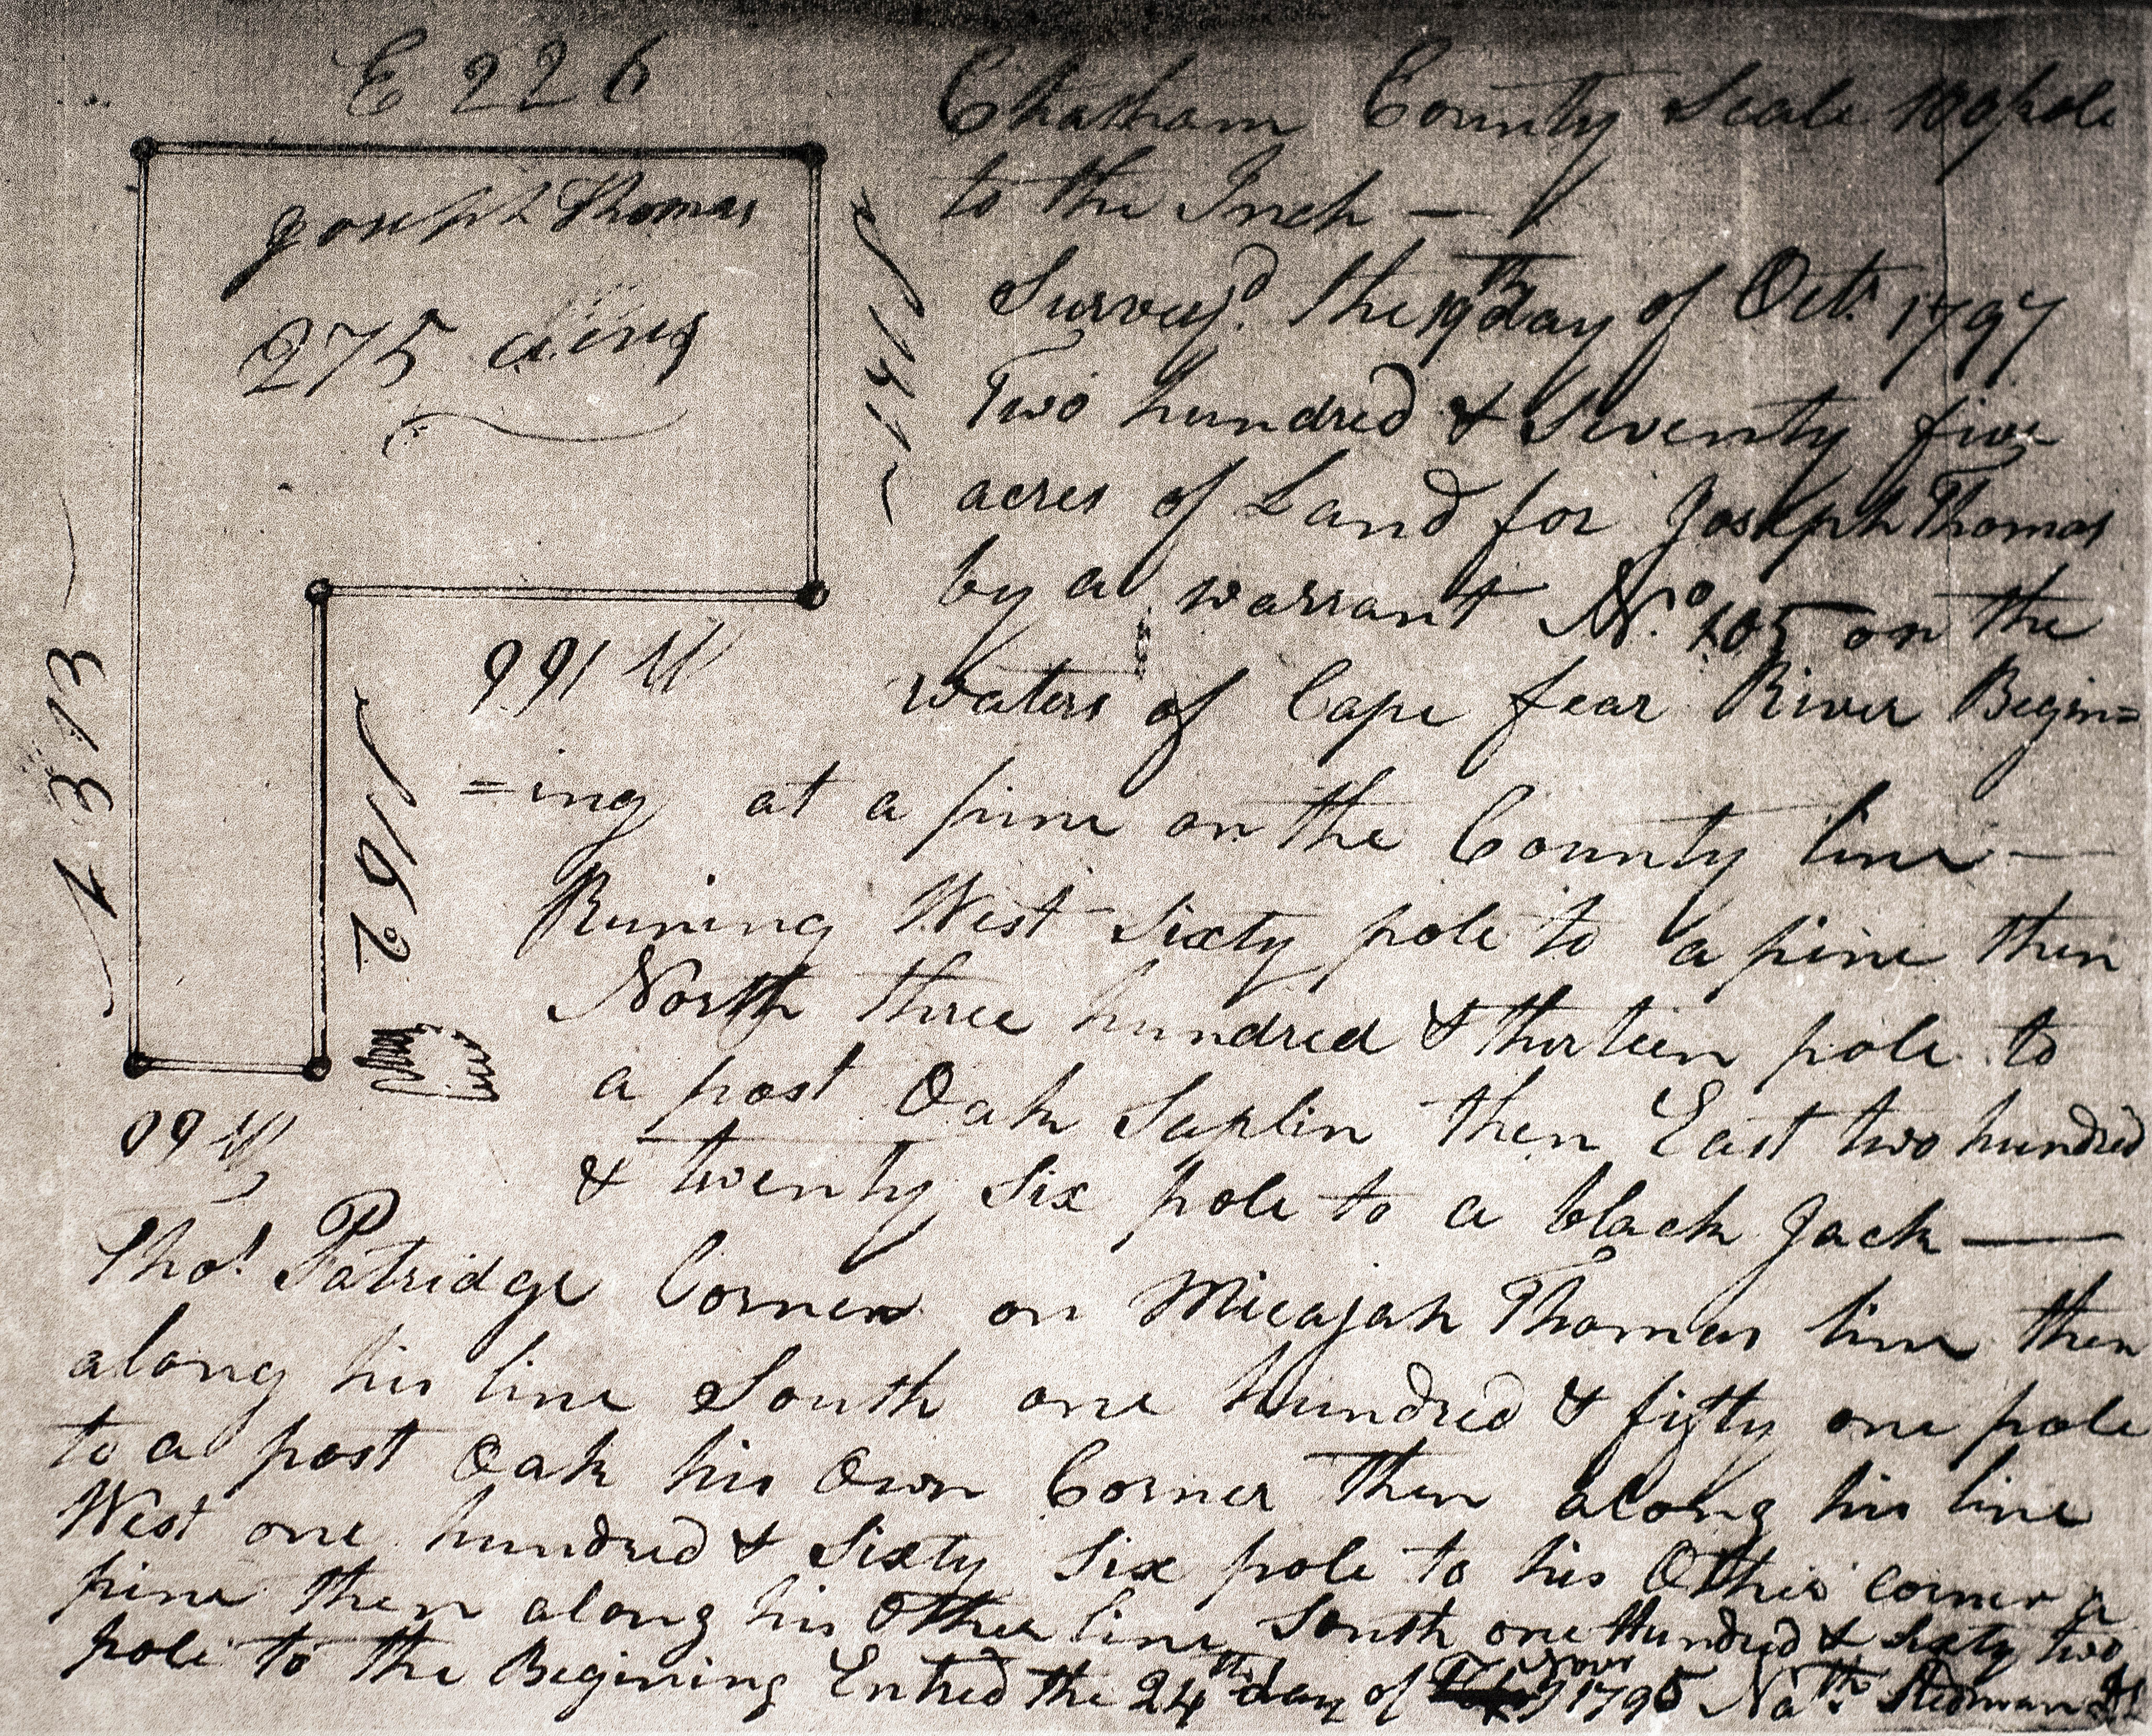 E 226
Joseph Thomas
275 acres
S 151
W 166
N 313
S 162
W 60
Chatham County Scale 100 pole
to the Inch —
Survey.d the 19th day of Oct.r 1797
Two hundred & Seventy five
acres of Land for Joseph Thomas
by a warrant No. 105 on the
waters of Cape fear River Begin=
=ing at a pine on the County line —
Runing West Sixty pole to a pine then
North three hundred & thirteen pole to
a post Oak Saplin then East two hundred
& twenty Six pole to a black Jack —
Thos. Patridge Corner on Micajah Thomas line then
along his line South one hundred & fifty one pole
to a post Oak his Own Corner then along his line
West one hundred & Sixty Six pole to his Other corner a
pine then along his Other line South one Hundred & Sixty two
pole to the Begining Entred the 24th day of Novr 1795 Nath. Stedman